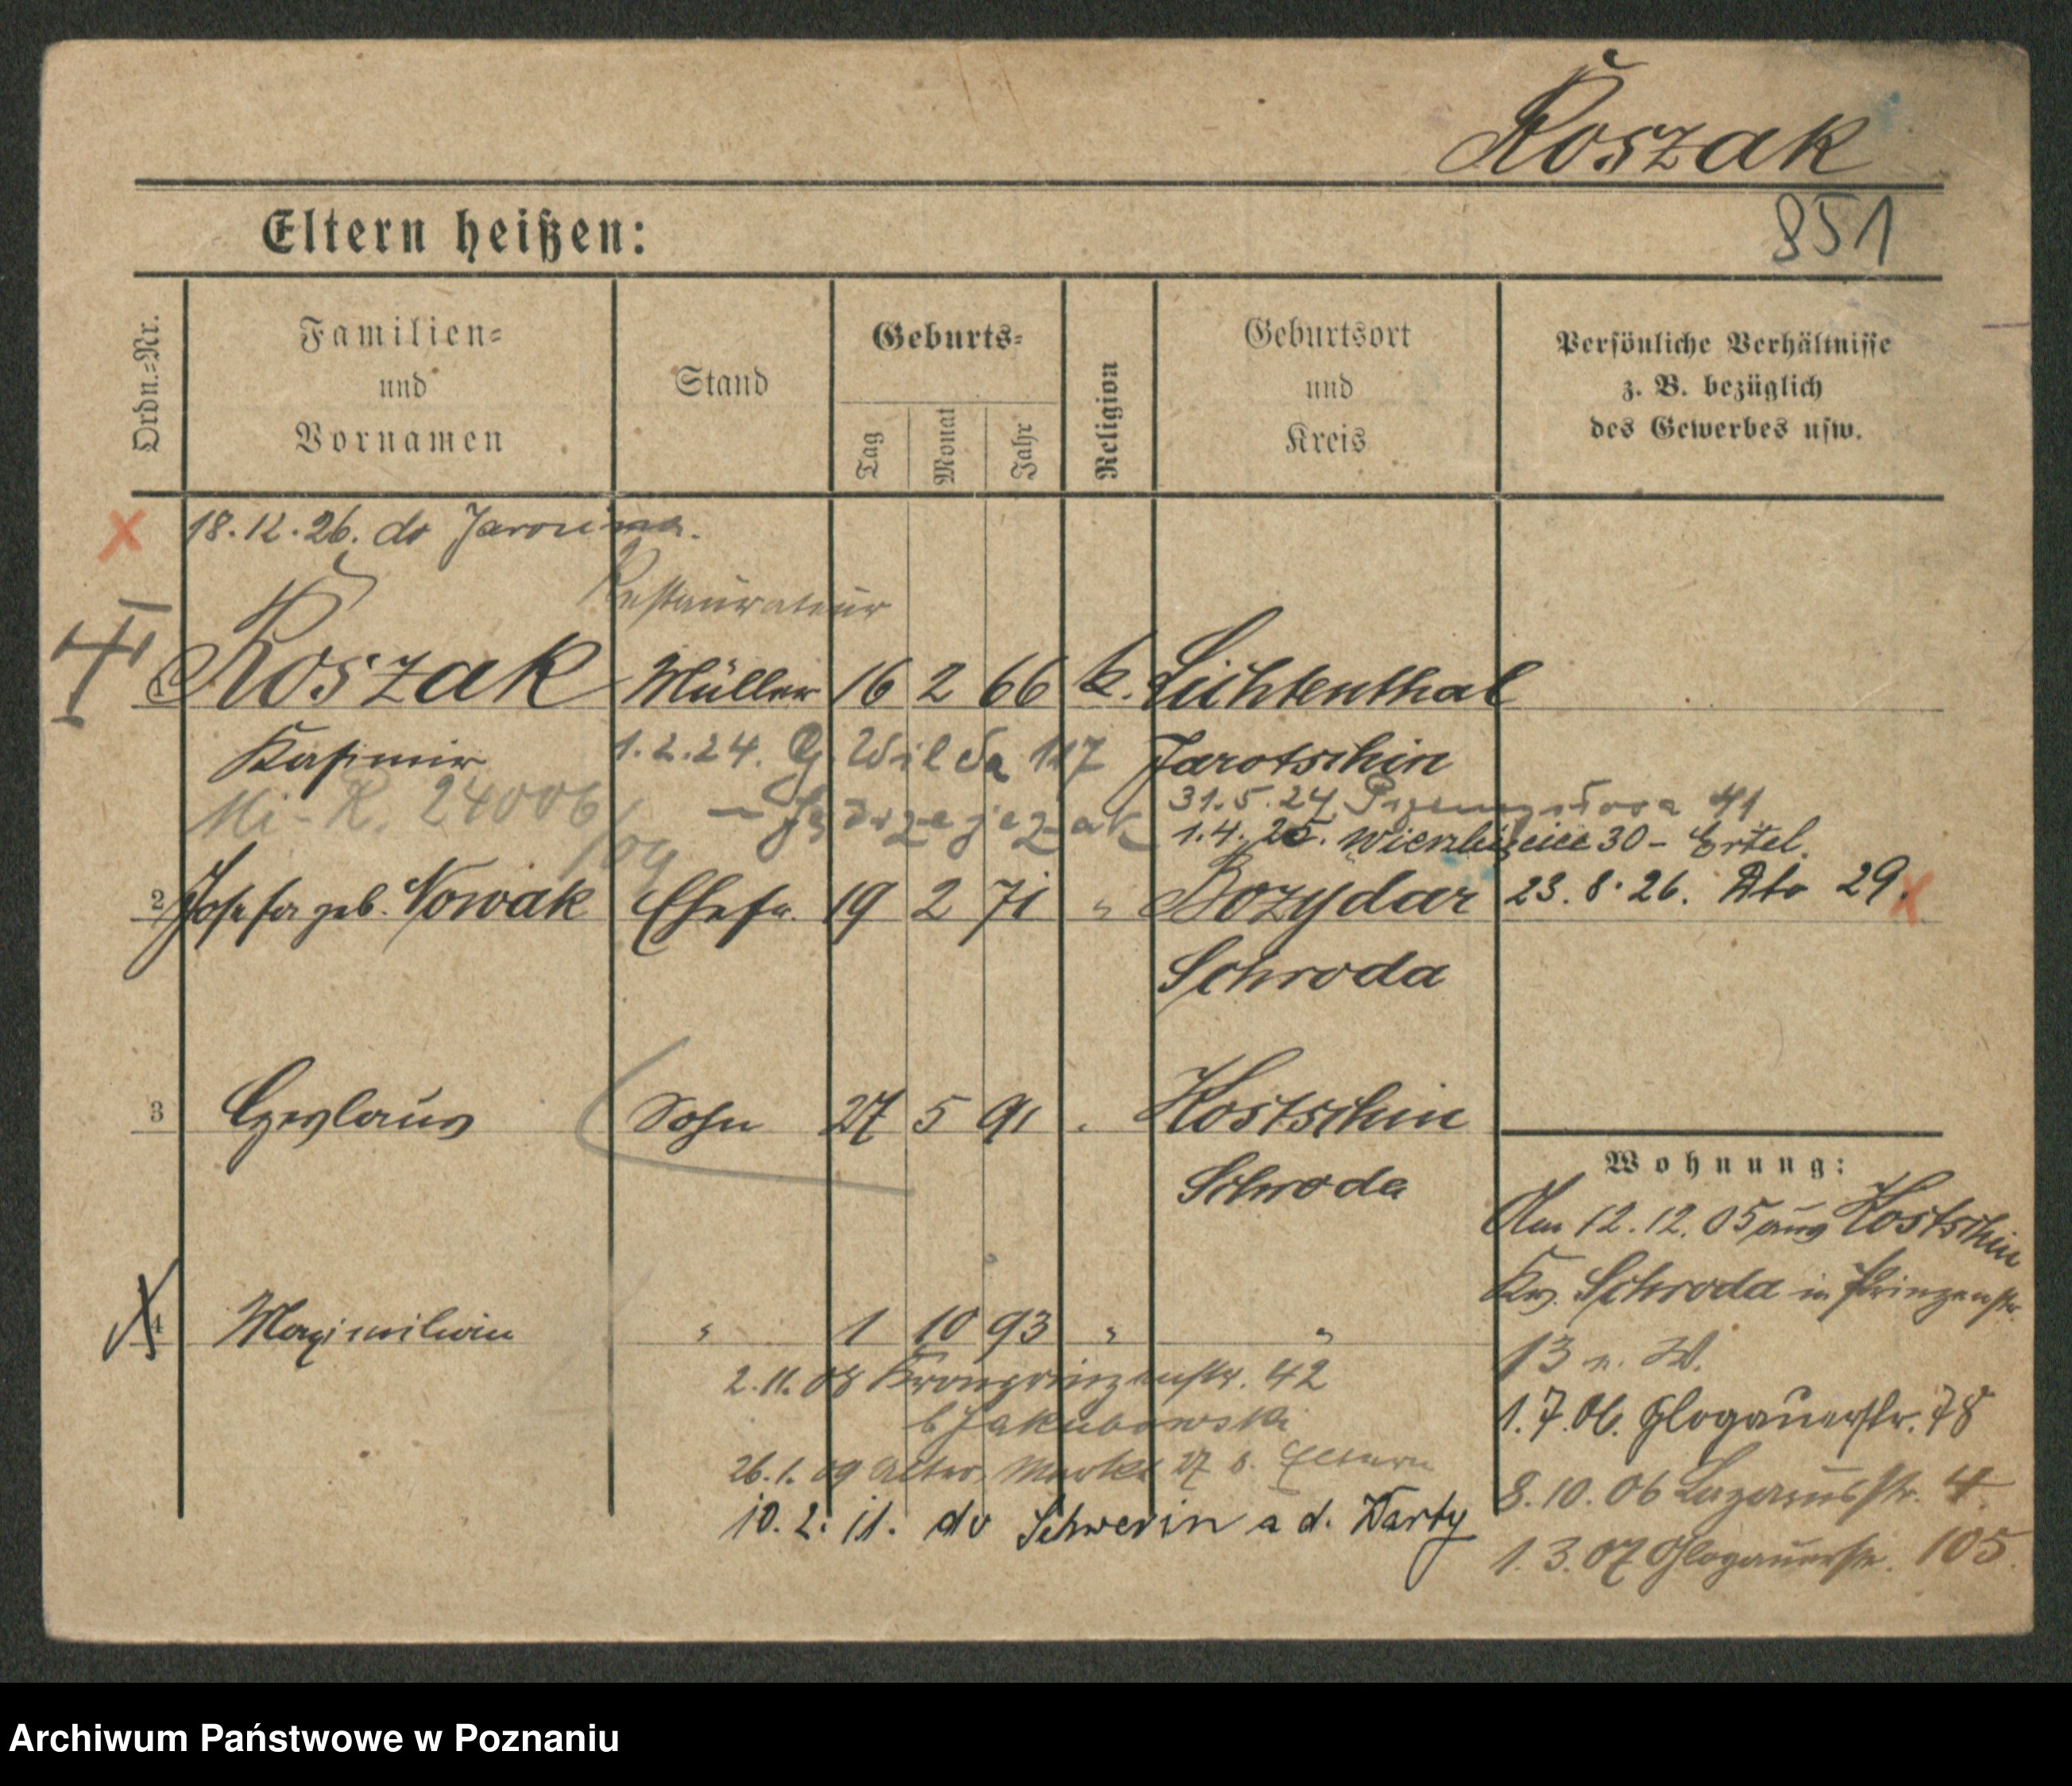 Koszak
Eltern heißen:
851
Ordn.-Nr.
Familien-
und
Vornamen
Stand
Geburts-
Tag
Monat
Jahr
Religion
Geburtsort
und
Kreis
Persönliche Verhältnisse
z. B. bezüglich
des Gewerbes usw.
18.12.26. do Jarocina.
Restaurateur
1 Koszak Müller 16 2 66 k. Lichtenthal
Kasimir 1.2.24. G. Wilda 117 Jarotschin
Mi-K. 24006/09 – Jędrzejczak
31.5.24 41
1.4.25. Wierzbięcice 30 – Ertel.
2 Josefa geb. Nowak Ehefr. 19 2 71 " Bozydar 23.8.26. Dto 29.
Schroda
3 Czeslaus Sohn 27 5 91 " Kostschin
Schroda
Wohnung:
Am 12.12.05 aus Kostschin
Krs. Schroda in Prinzenstr.
13 n. W.
4 Maximilian " 1 10 93 " "
2.11.08 Kronprinzenstr. 42
b Jakubowski
26.1.09 Alter Markt 27 b. Eltern
10.2.11. do Schwerin a d. Warty
1.7.06. Glogauerstr. 78
8.10.06 Lazarusstr. 4.
1.3.07 Glogauerstr. 105.
Archiwum Państwowe w Poznaniu